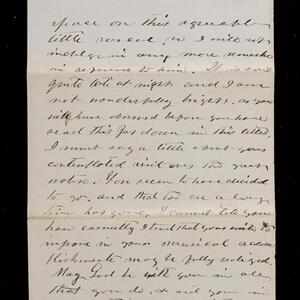 space on this agreeable
little so I will not
indulge in any more remarks
in reference to him. It is now
quite late at night and I am
not wonderfully bright, as you
will have observed before you have
read this far down in this letter.
I must say a little about your
contemplated visit over the great
You seem to have decided
to go, and that too on a long
time has gone. I cannot tell you
how earnestly I trust that your wish to
improve in your musical accom
plishments may be fully realized.
May God be with you in all
that you do, and aid you in